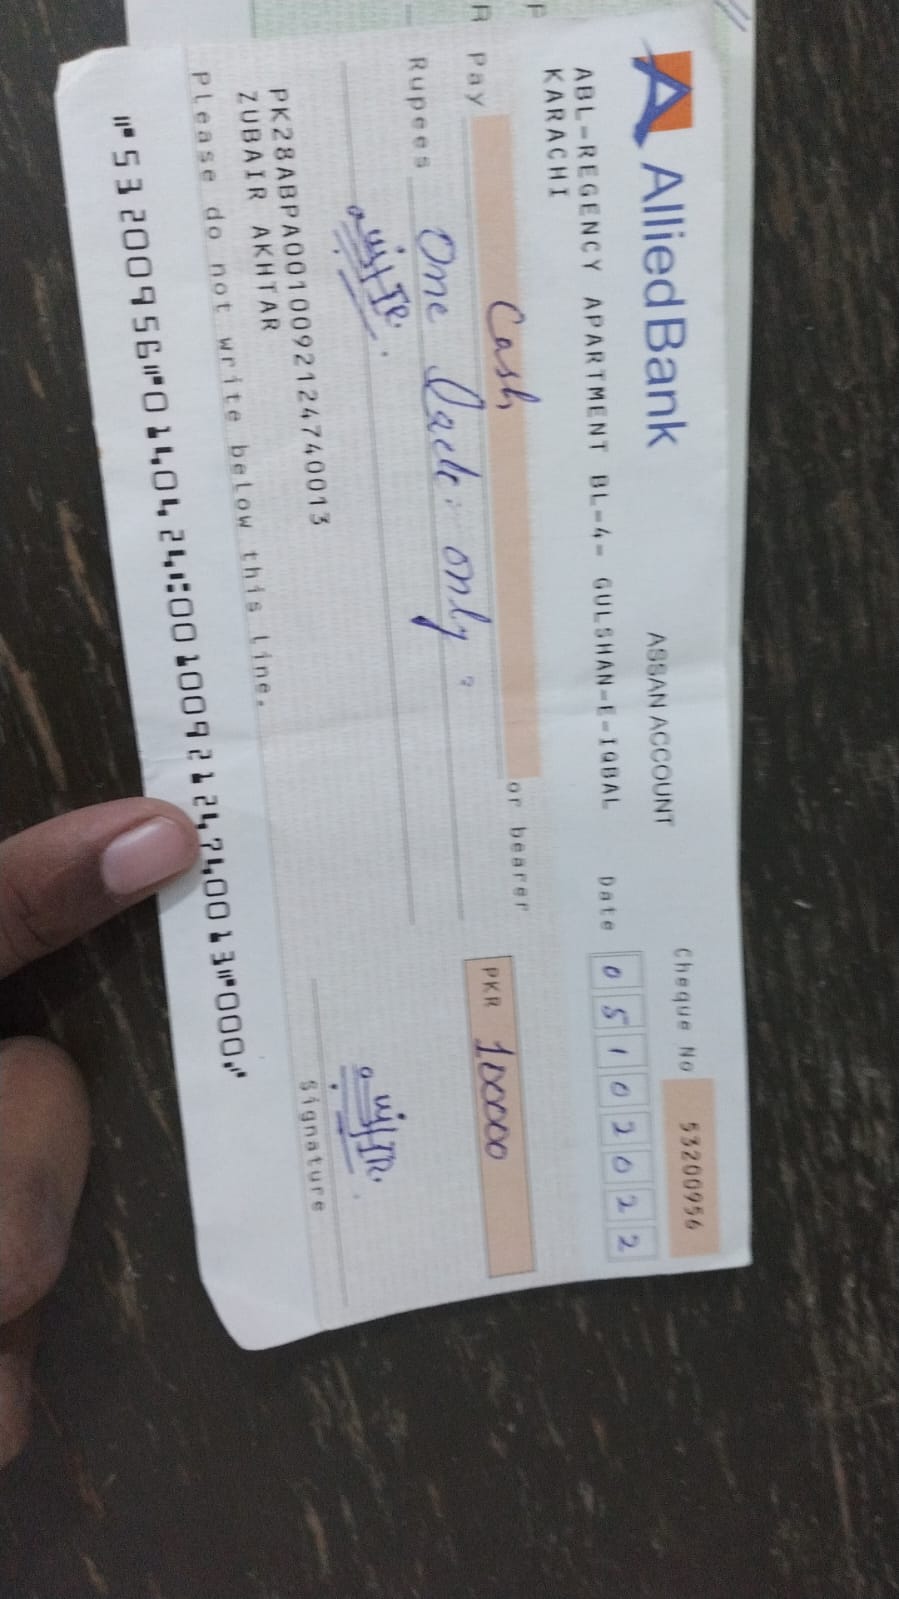 Allied Bank
ASSAN ACCOUNT
Cheque No 53200956
ABL-REGENCY APARTMENT BL-4- GULSHAN-E-IQBAL
KARACHI
Date 05102022
Pay Cash or bearer
Rupees One Lack only
PKR 100000
PK28ABPA0010092124740013
ZUBAIR AKHTAR
Signature
Please do not write below this line.
⑈53200956⑈0140424⑆0010092124740013⑈000⑈